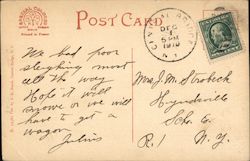 POST CARD
DEC
1
5 PM
1910
N.Y.
We had poor
sleighing most
all the way
Hope it will
snow or we will
have to get a
wagon
Julius
Mrs J. M. Strobeck
Hyndsville
Scho. Co.
R. 1 N.Y.